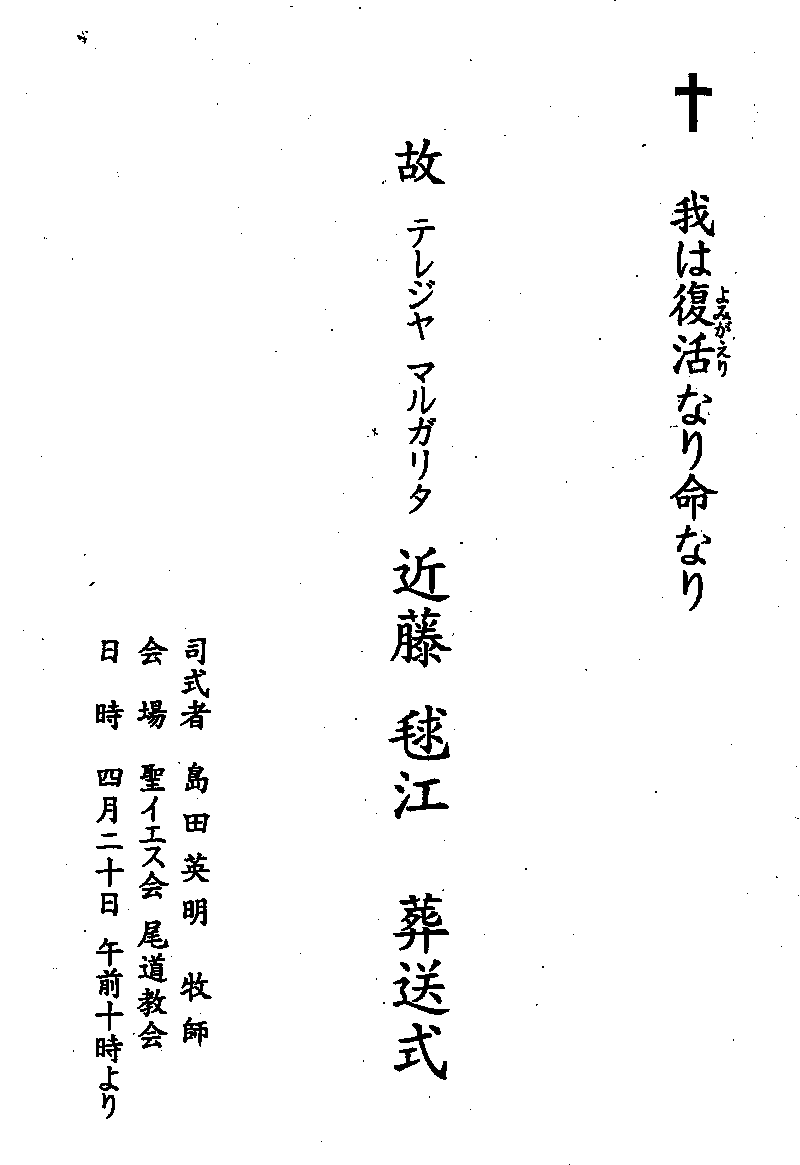 我は復活なり命なり
よみがえり
故 テレジヤ マルガリタ 近藤 毬江 葬送式
司式者 島田英明 牧師
会場 聖イエス会 尾道教会
日時 四月二十日 午前十時より